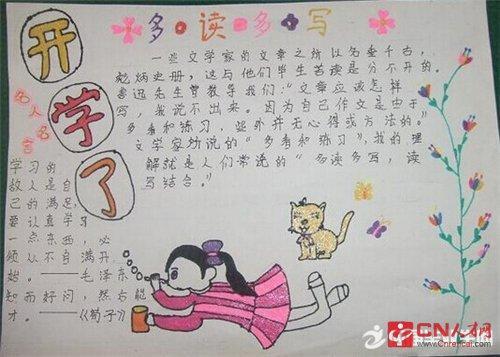 开学了
多·读·多·写
一些文学家的文章之所以名垂千古，
彪炳史册，这与他们毕生苦读是分不开的。
鲁迅先生曾教导我们：“文章应该怎样
写，我说不出来。因为自己作文是由于
多看和练习，此外并无心得或方法的。”
文学家劝说的“多看和练习”，我的理
解就是人们常说的“多读多写，读
写结合。”
名人名言
学习的
敌人是自
己的满足，
要认真学习
一点东西，必
须以不自满开
始。——毛泽东
知而好问，然后能
才。——《荀子》
CN人才网
www.Cnrencai.com